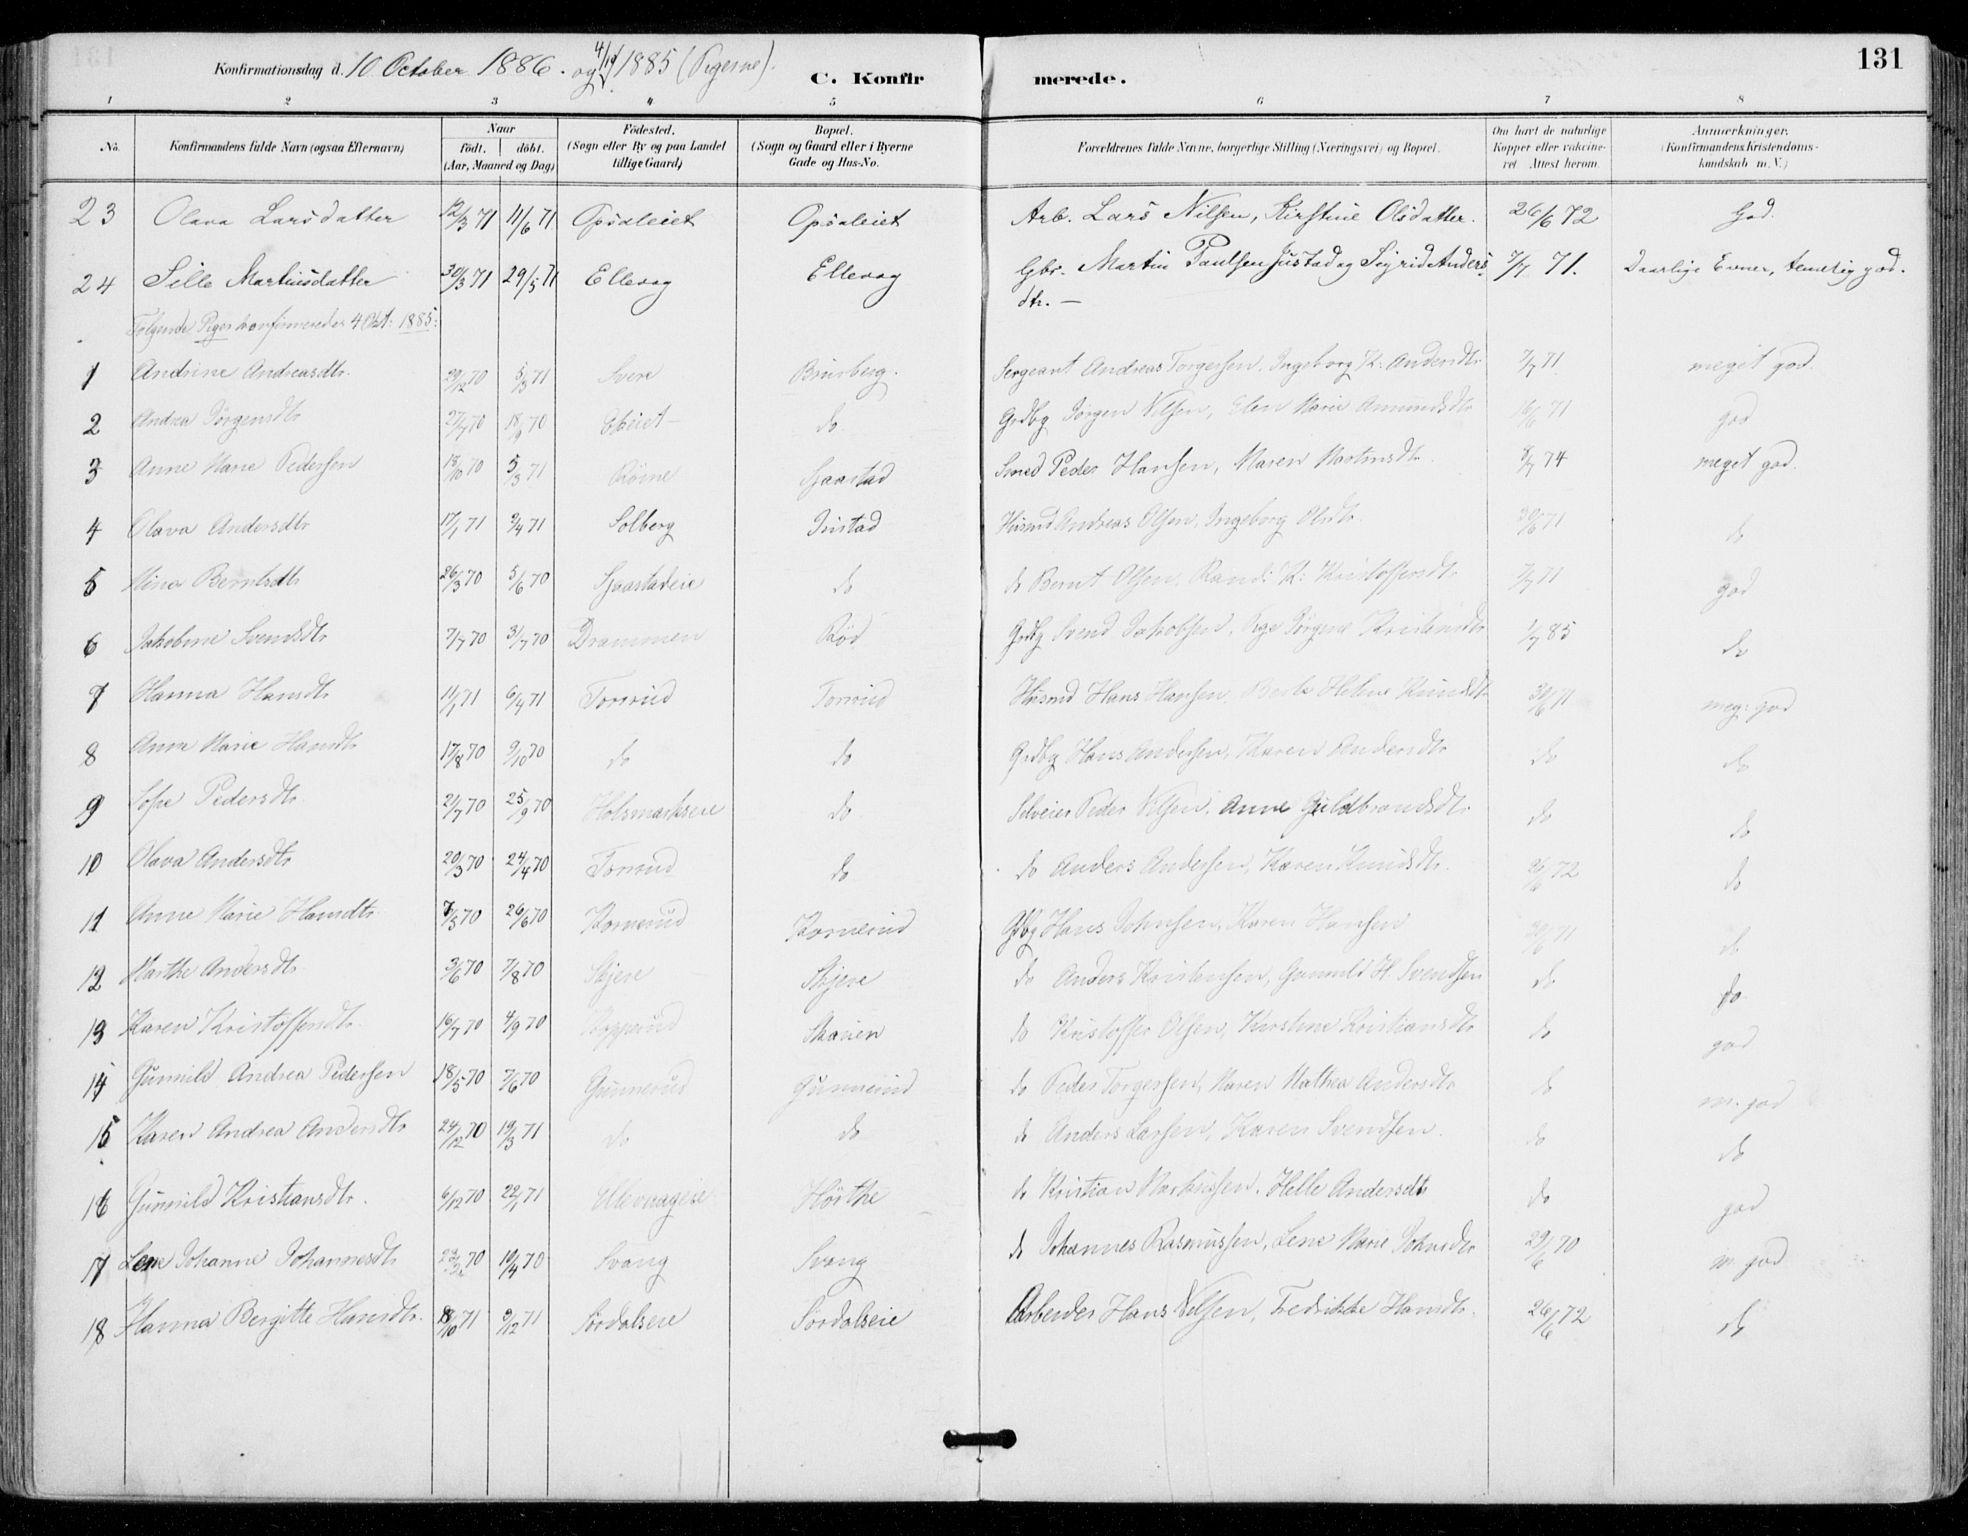 131
Konfirmationsdag d. 10 October 1886. og 4/10 1885 (Pigerne).
C. Konfirmerede.
1 2 3 4 5 6 7 8
No. Konfirmandens fulde Navn (ogsaa Efternavn) Naar födt. döbt. (Aar, Maaned og Dag) Födested. (Sogn eller By og paa Landet tillige Gaard) Bopæl. (Sogn og Gaard eller i Byerne Gade og Hus-No. Forældrenes fulde Navne, borgerlige Stilling (Næringsvei) og Bopæl. Om havt de naturlige Kopper eller vakcineret. Attest herom. Anmærkninger. (Konfirmandens Kristendomskundskab m. V.)
23 Olava Larsdatter 12/3 71 11/6 71 Opsaleiet Opsaleiet Arb. Lars Nilsen, Kirstine Olsdatter. 26/6 72 God.
24 Sille Martinsdatter 30/3 71 29/5 71 Ellevog Ellevog Gbr. Martin Paulsen Justad og Sigrid Anders 7/7 71. Daarlige Evner, temelig god.
dtr. —
Følgende Piger konfirmerede 4 Okt: 1885:
1 Andrine Andreasdtr. 29/12 70 5/3 71 Svere Brusberg. Sergeant Andreas Torgersen, Ingeborg K. Andersdtr 7/7 71 meget god.
2 Andrea Jörgensdtr 27/7 70 18/9 70 do. Grdbg Jörgen Nilsen, Elen Marie Amundsdtr 16/6 71 god
3 Anne Marie Pedersen 18/10 70 5/3 71 Sjaastad Smed Peder Hansen, Maren Martinsdtr. 8/7 74 meget god.
4 Olava Andersdtr 17/1 71 9/4 71 Solberg Justad Husmd Andreas Olsen, Ingeborg Olsdtr. 30/6 71 do
5 Mina Berntsdtr 26/3 70 5/6 70 Sjaastadeie do do Bernt Olsen, Randi K. Kristoffersdtr 7/7 71 god
6 Jakobine Svendsdtr 7/4 70 3/7 70 Drammen Röd Grdbg Svend Jakobsen, Inge Jörgine Kristensdtr 1/7 85 do
7 Hanna Hansdtr 11/1 71 6/4 71 Torrud Torrud Husmd Hans Hansen, Berte Helene Knudsdtr 30/6 71 meg: god
8 Anne Marie Hansdtr 17/8 70 9/10 70 do do Grdbg Hans Andersen, Karen Andersdtr do do
9 Sofie Pedersdtr. 21/7 70 25/9 70 Holsmarkseie do Selveier Peder Nilsen, Anne Guldbrandsdtr. do do
10 Olava Andersdtr 20/3 70 24/4 70 Torrud do do Anders Andersen, Karen Knudsdtr. 26/6 72 do
11 Anne Marie Hansdtr. 8/5 70 26/6 70 Kornerud Kornerud Gdbg Hans Johnsen, Karen Hansen 30/6 71 do
12 Marthe Andersdtr. 3/6 70 7/8 70 Skjere Skjere do Anders Kristensen, Gunnild H. Svendsen do do
13 Karen Kristoffersdtr. 16/7 70 4/9 70 Skarien do Kristoffer Olsen, Kirstine Kristiansdtr do god
14 Gunnild Andrea Pedersen 18/5 70 7/6 70 Gunnerud Gunnerud do Peder Torgersen, Maren Mathea Andersdtr do m. god
15 Karen Andrea Andersdtr 24/12 70 19/3 71 do do do Anders Larsen, Karen Svendsen. do do
16 Gunnild Kristiansdtr. 6/12 70 22/1 71 Ullevaageie Hörthe do Kristian Markussen. Helle Andersdtr do god
17 Lene Johanne Johannesdtr 70 10/4 70 Svang Svang do Johannes Rasmussen, Lene Marie Johnsdtr 29/6 70 m. god
18 Hanna Bergitte Hansdtr. 18/10 71 3/12 71 Sördalseie Sördalseie Arbeider Hans Nilsen, Fredrikke Hansdtr. 26/6 72 do